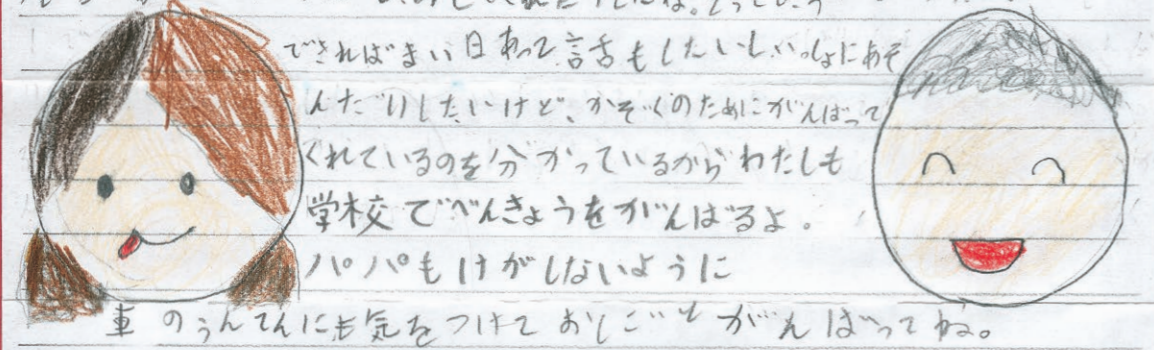 できればまい日あって言舌もしたいしいっしょにあそ
んだりしたいけど、かぞくのためにがんばって
くれているのを分かっているからわたしも
学校でべんきょうをがんばるよ。
パパもけがしないように
車のうんてんにも気をつけておしごとがんばってね。